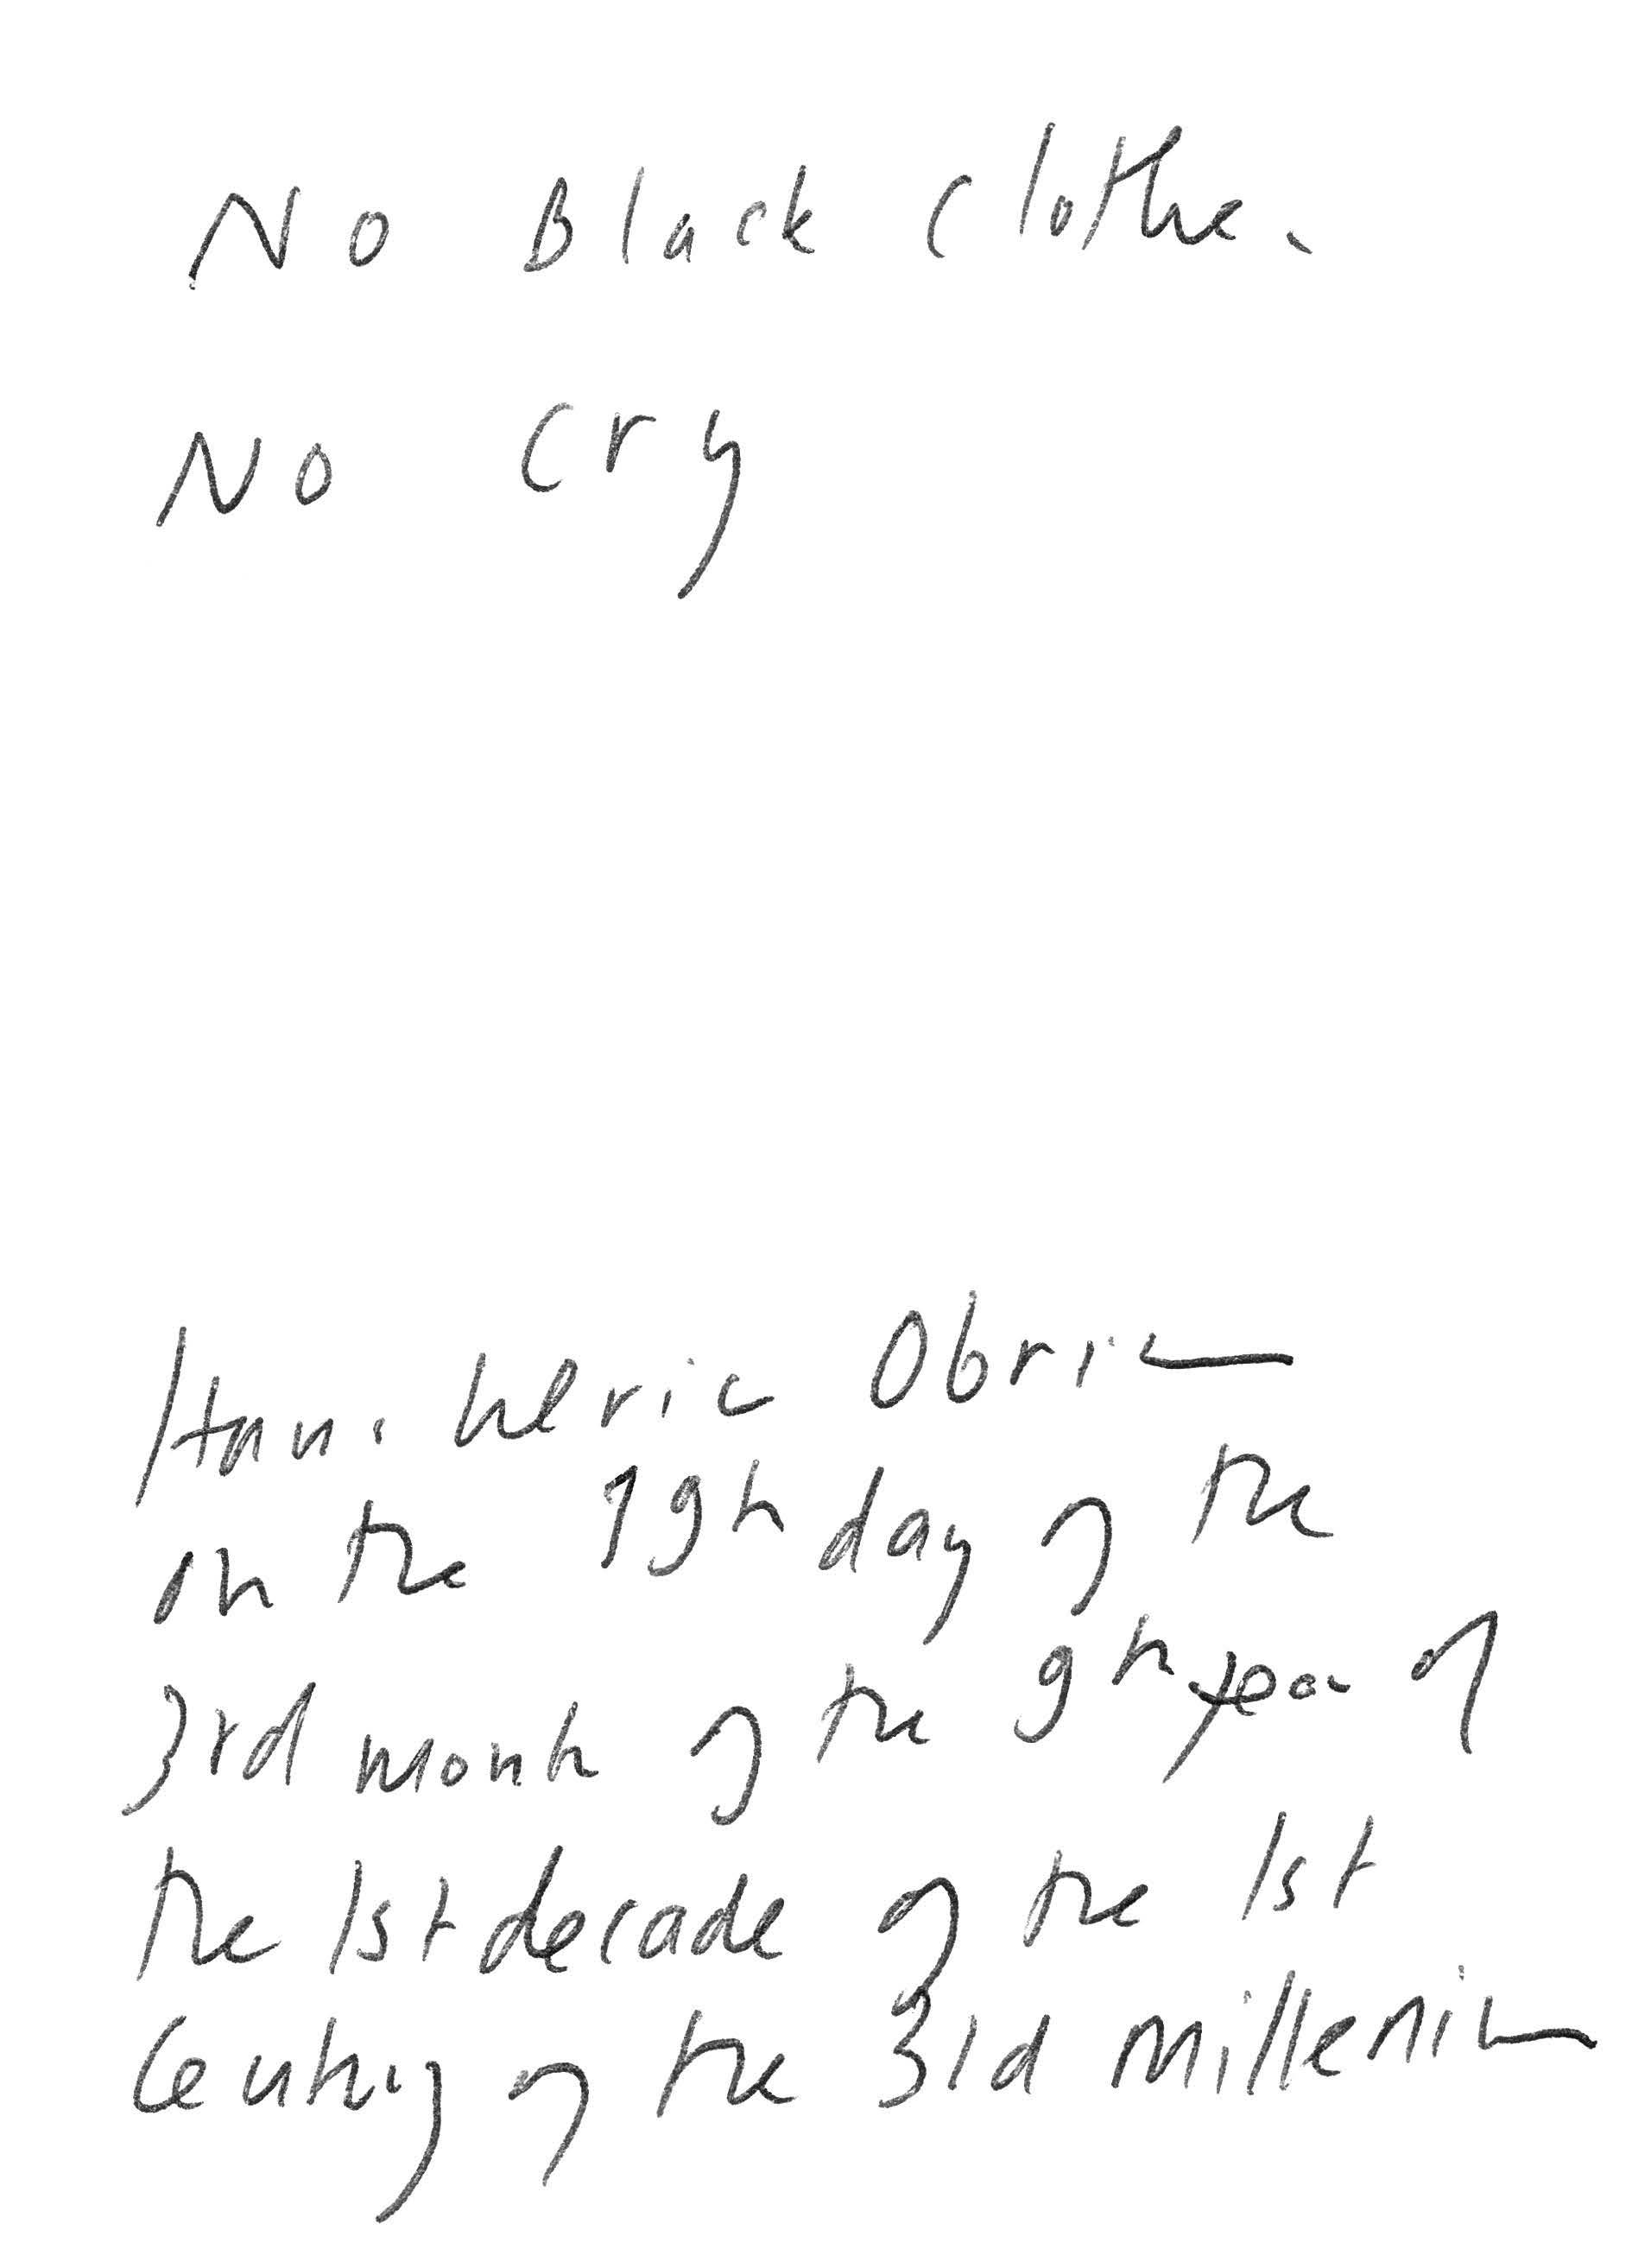 No Black Clothe.
No Cry
Hans Ulrich Obrist
on the 19th day of the
3rd month of the 9th year of
the 1st decade of the 1st
Century of the 3rd millenium